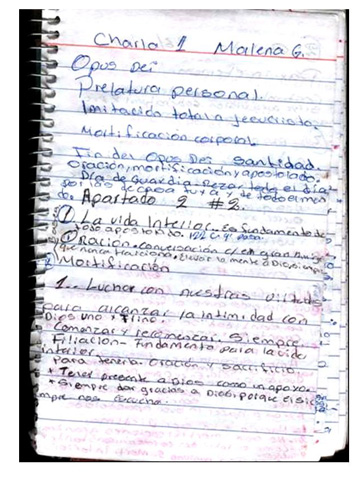 Charla 1 Malena G.
Opus Dei
Prelatura personal.
Imitación total a Jesucristo.
Mortificación corporal
Fin del Opus Dei santidad.
Oración, mortificación y apostolado.
Día de guardia. Rezar todo el día
por los de y a de todo el
Apartado 2 #2.
1 La vida Interior. Es fundamento de
todo apostolado.
Oración. conversación c/ el gran
que nunca traiciona. Llevar la mente a Dios
Mortificación
1.. Luchar con nuestras
para alcanzar la intimidad con
Dios uno y trino.
Comenzar y recomenzar. Siempre
Filiación - Fundamento para la vida
interior.
Para tenerla: oración y sacrificio.
* Tener presente a Dios como un apoyo.
* Siempre dar gracias a Dios, porque él sie
mpre nos escucha.